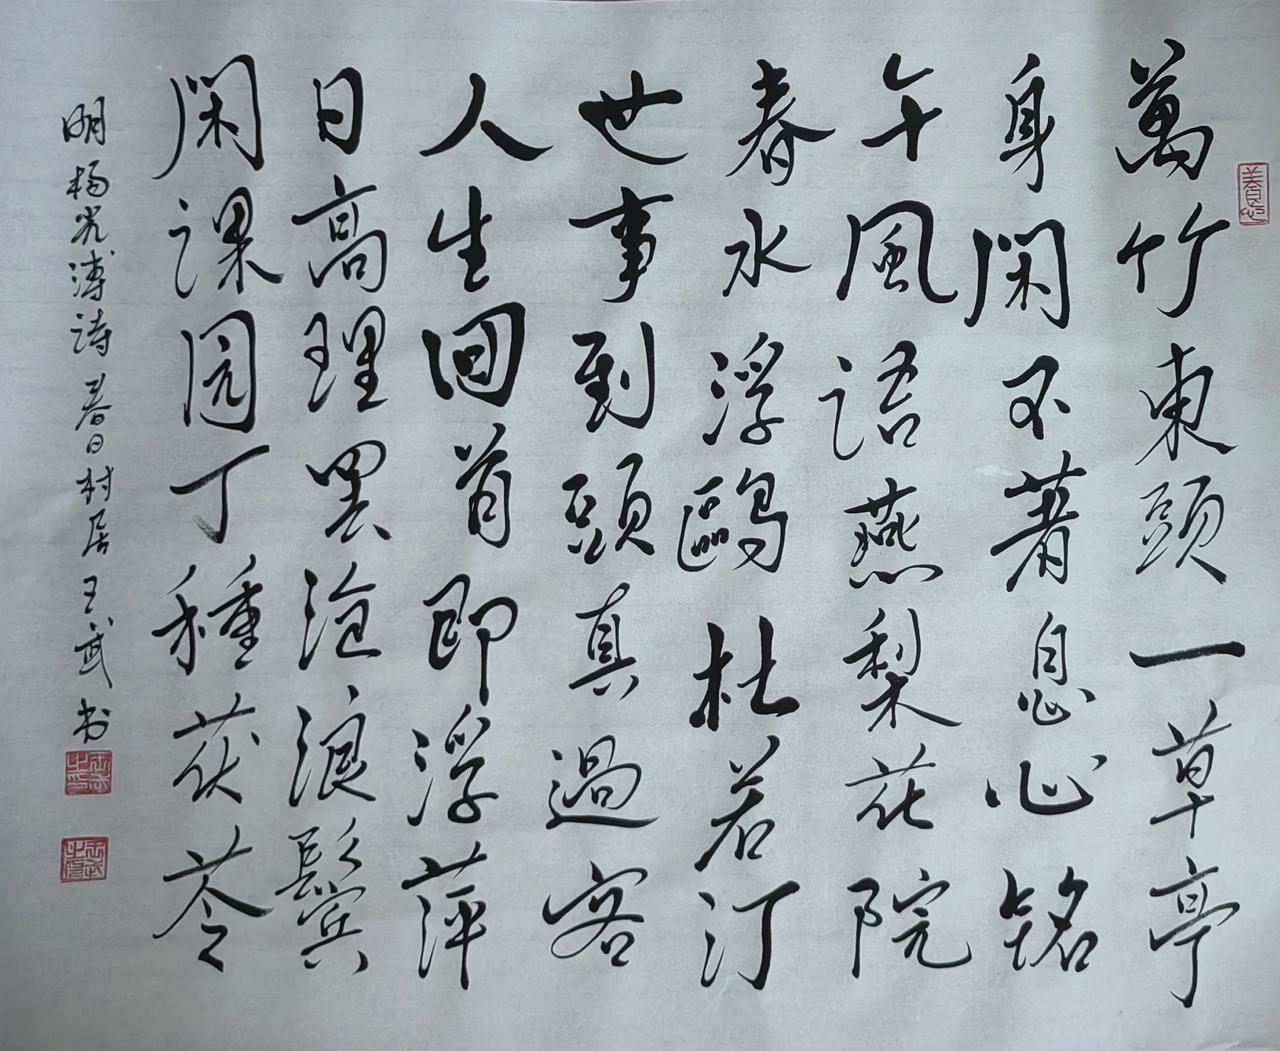 萬竹東頭一草亭
身閑不著息心銘
午風語燕梨花院
春水浮鷗杜若汀
世事到頭真過客
人生回首即浮萍
日高理罢沧浪鬓
閑課园丁種茯苓
明杨光溥诗春日村居王武书
養心